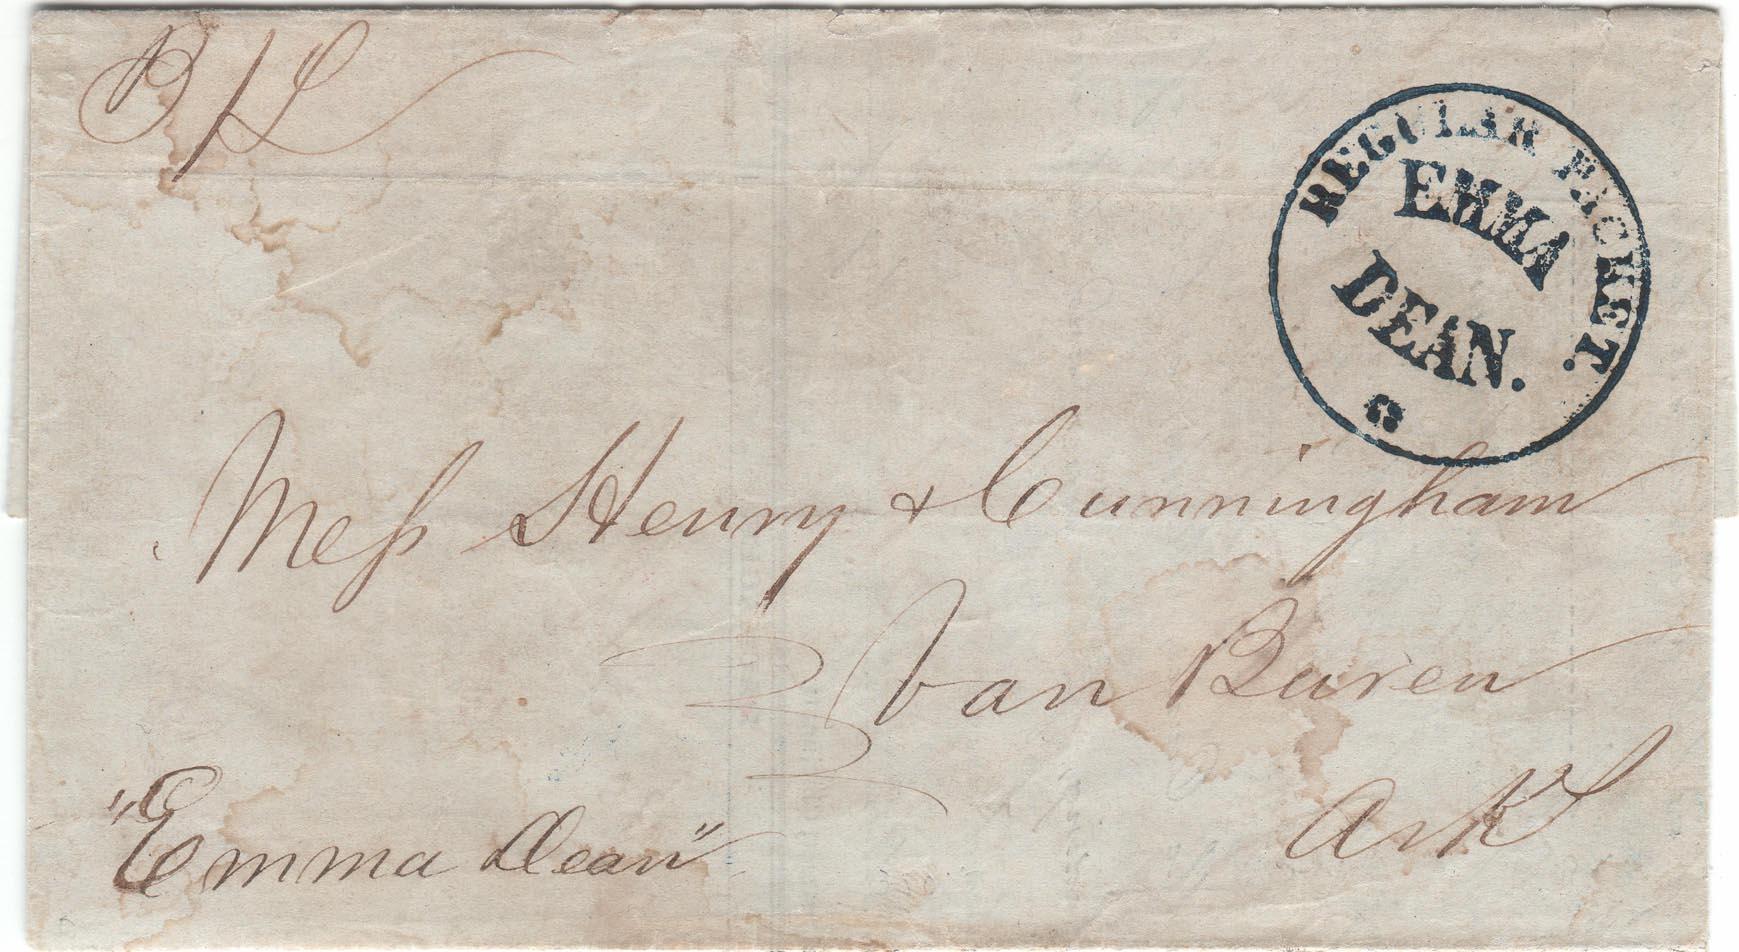 B/L
REGULAR PACKET.
EMMA
DEAN.
Mess Henry & Cunningham
Van Buren
Ark
"Emma Dean"